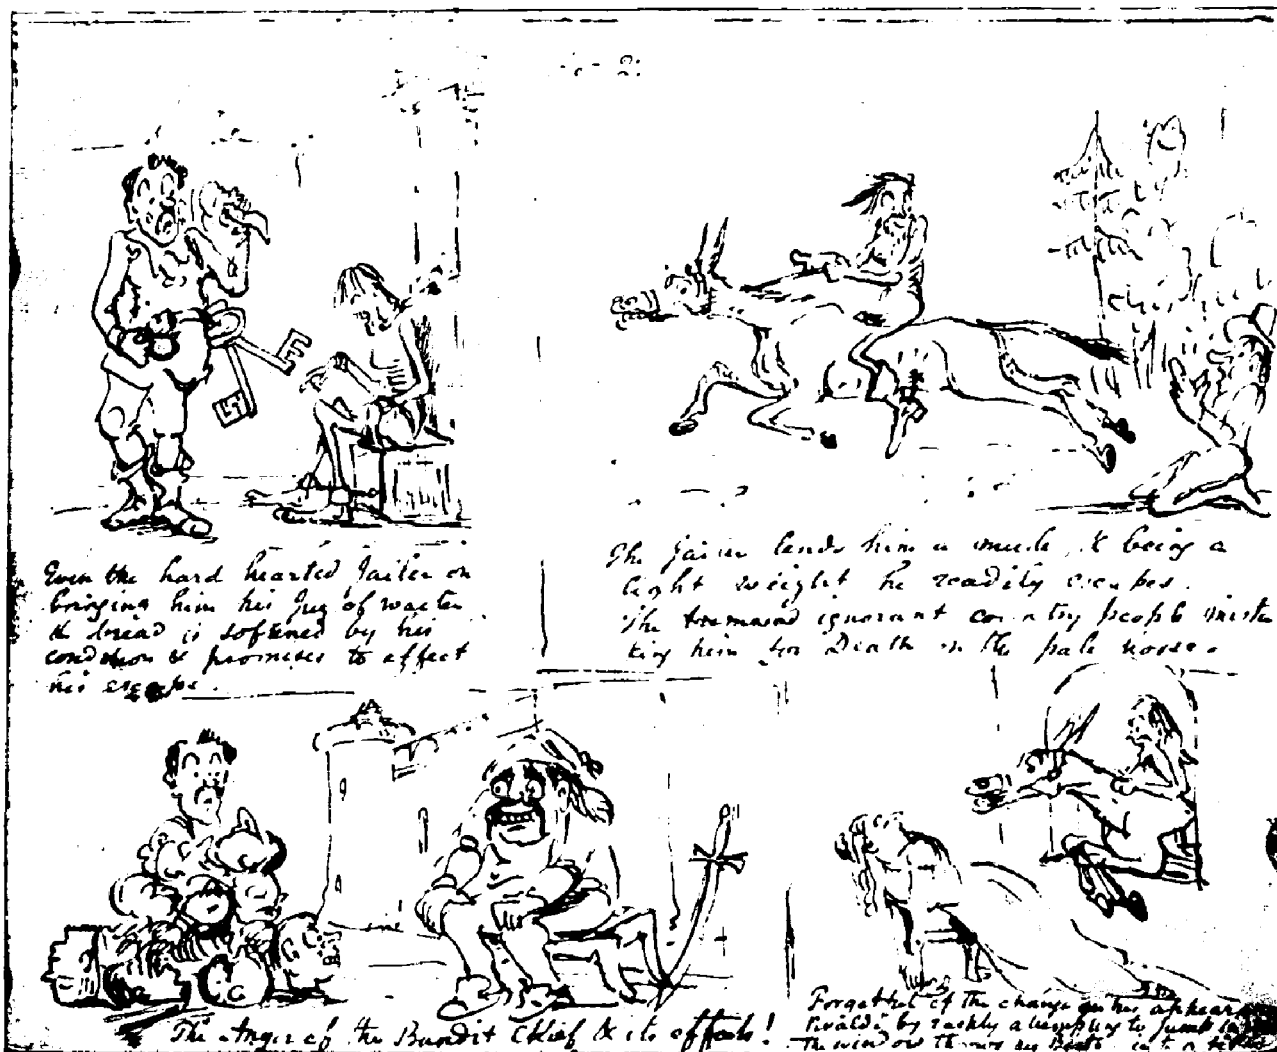 2.
Even the hard hearted Jailer on
bringing him his Jug of water
& bread is softened by his
condition & promises to effect
his escape.
The Jailer lends him a mule & being a
light weight he readily escapes.
The ignorant country people mista
king him for Death on the pale horse.
The Anger of the Bandit Chief & its effects!
Forgetful of the change in his appearan
by rashly attempting to jump in
the window throws his into a